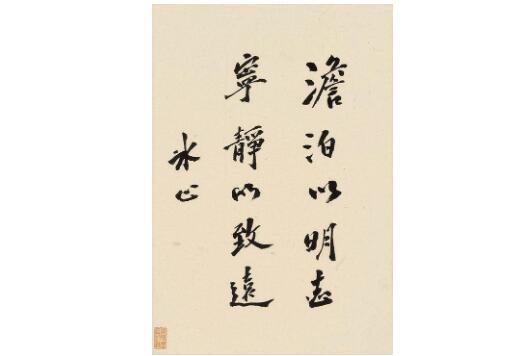 澹泊以明志
寧靜以致遠
冰心